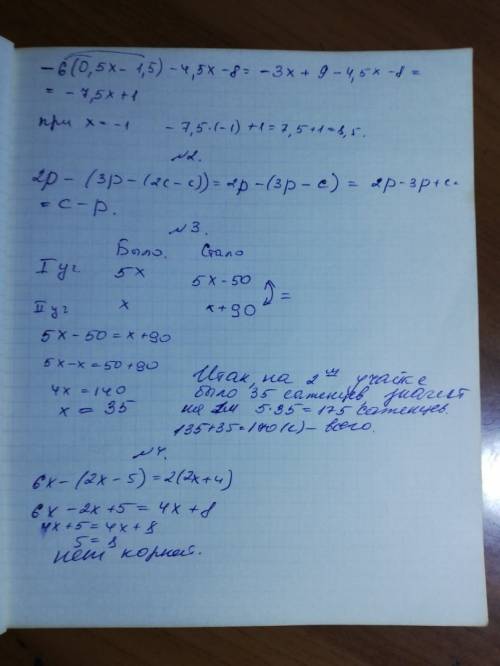 -6(0,5x-1,5)-4,5x-8= -3x+9-4,5x-8=
= -7,5x+1
при x=-1   -7,5·(-1)+1=7,5+1=8,5.
№2.
2p-(3p-(2c-c))=2p-(3p-c)= 2p-3p+c=
=c-p.
№3.
Было. Стало
I уч 5x 5x-50
II уч x x+90 =
5x-50=x+90
5x-x=50+90
4x=140
x=35
Итак, на 2ом участке
было 35 саженцев, значит
на 1м 5·35=175 саженцев.
135+35=170(с)- всего.
№4.
6x-(2x-5)=2(2x+4)
6x-2x+5=4x+8
4x+5=4x+8
5=8
нет корней.